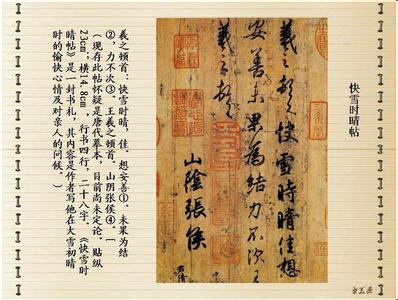 快雪时晴帖
羲之頓首快雪時晴佳想
安善未果為結力不次王
羲之頓首
山陰張侯
羲之顿首：快雪时晴，佳。想安善①。未果为结
②，力不次③。王羲之顿首，山阴张侯④。
（现存此帖怀疑是唐代摹本，目前尚未定论。贴纵
23cm，横14.8cm。行书四行，二十八字。《快雪时
晴帖》是一封书札，其内容是作者写他在大雪初晴
时的愉快心情及对亲人的问候。）